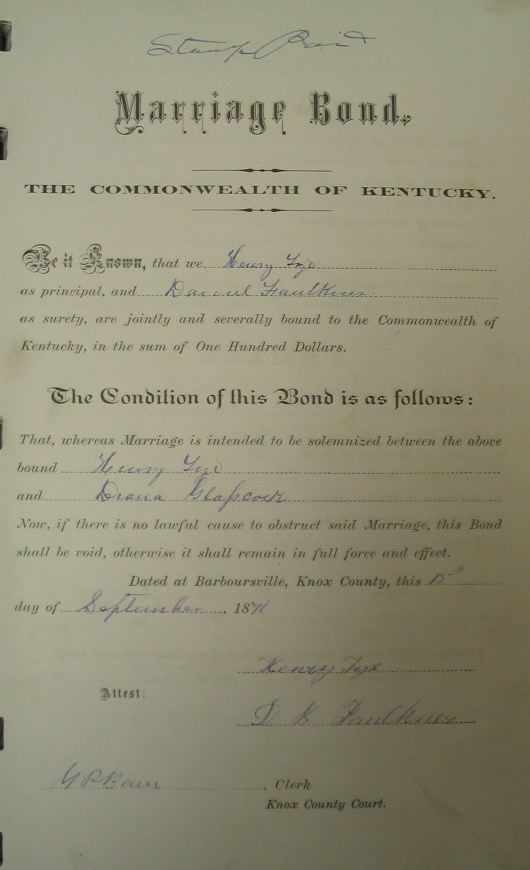 Stamp Paid
Marriage Bond.
THE COMMONWEALTH OF KENTUCKY.
Be it Known, that we Henry Tye
as principal, and Daniel Faulkner
as surety, are jointly and severally bound to the Commonwealth of
Kentucky, in the sum of One Hundred Dollars.
The Condition of this Bond is as follows:
That, whereas Marriage is intended to be solemnized between the above
bound Henry Tye
and Diana Glasscock
Now, if there is no lawful cause to obstruct said Marriage, this Bond
shall be void, otherwise it shall remain in full force and effect.
Dated at Barboursville, Knox County, this 15"
day of September, 18
Henry Tye
Attest:
Faulkner
, Clerk
Knox County Court.